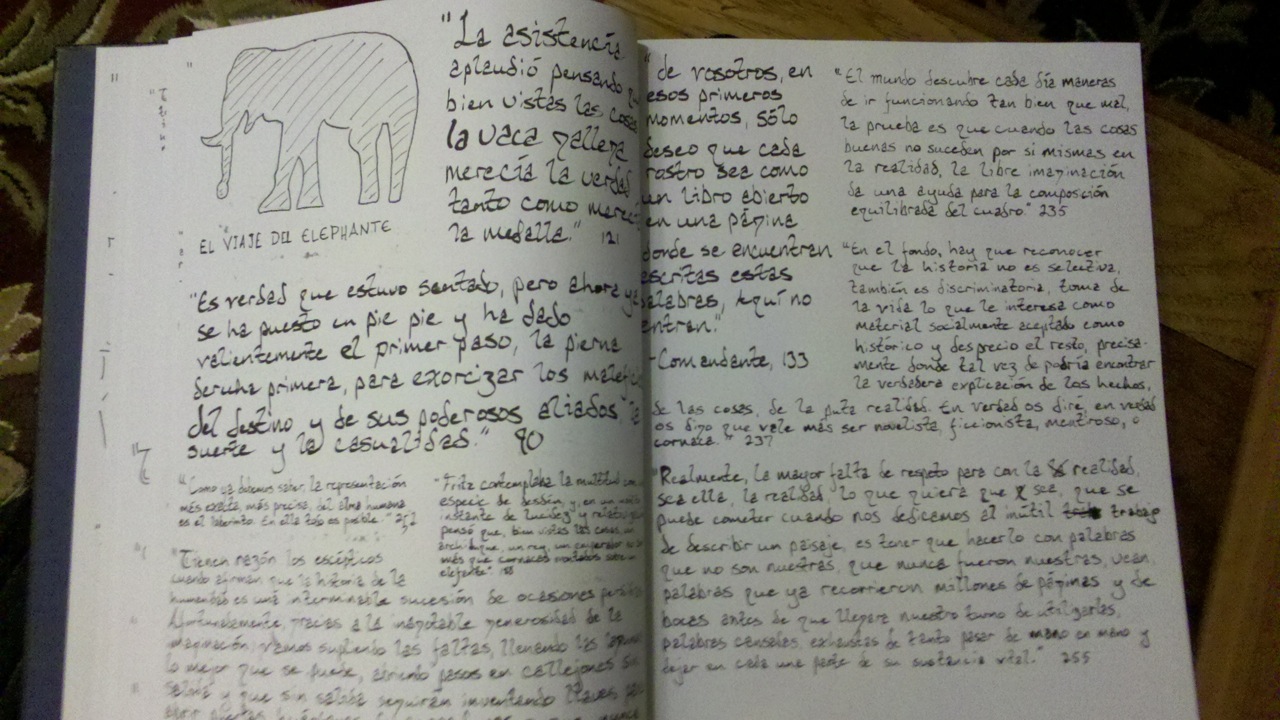 EL VIAJE DEL ELEPHANTE
"La asistencia
aplaudió pensando que
bien vistas las cosas
la vaca gallega
merecía la verdad
tanto como merecía
la medalla." 121
"Es verdad que estuvo sentado, pero ahora ya
se ha puesto en pie pie y ha dado
valientemente el primer paso, la pierna
derecha primera, para exorcizar los maleficios
del destino y de sus poderosos aliados, la
suerte y la casualidad." 90
"Como ya debemos saber, la representación
más exacta, más precisa, del alma humana
es el laberinto. En ella todo es posible."
"Fritz contemplaba la multitud con
especie de desdén, y, en un
instante de lucidez y
pensó que, bien vistas las cosas, un
archiduque, un rey, un emperador no son
más que cornacas montados sobre un
elefante."
"Tienen razón los escépticos
cuando afirman que la historia de la
humanidad es una interminable sucesión de ocasiones perdidas.
Afortunadamente, gracias a la inagotable generosidad de la
imaginación, vamos supliendo las faltas, llenando las lagunas
lo mejor que se puede, abriendo pasos en callejones sin
salida y que sin salida seguirán inventando llaves para
abrir puertas
"de vosotros, en
esos primeros
momentos, sólo
deseo que cada
rostro sea como
un libro abierto
en una página
donde se encuentran
escritas estas
palabras, Aquí no
entran."
-Comandante, 133
"El mundo descubre cada día maneras
de ir funcionando tan bien que mal,
la prueba es que cuando las cosas
buenas no suceden por si mismas en
la realidad, la libre imaginación
da una ayuda para la composición
equilibrada del cuadro." 235
"En el fondo, hay que reconocer
que la historia no es selectiva,
también es discriminatoria, toma de
la vida lo que le interesa como
material socialmente aceptado como
histórico y desprecio el resto, precisa-
mente donde tal vez de podría encontrar
la verdadera explicación de los hechos,
de las cosas, de la puta realidad. En verdad os diré, en verdad
os digo que vale más ser novelista, ficcionista, mentiroso, o
cornaca." 237
"Realmente, la mayor falta de respeto para con la realidad,
sea ella, la realidad, lo que quiera que sea, que se
puede cometer cuando nos dedicamos al inútil trabajo
de describir un paisaje, es tener que hacerlo con palabras
que no son nuestras, que nunca fueron nuestras, vean,
palabras que ya recorrieron millones de páginas y de
bocas antes de que llegara nuestro turno de utilizarlas,
palabras cansadas, exhaustas de tanto pasar de mano en mano y
dejar en cada una parte de su sustancia vital." 255